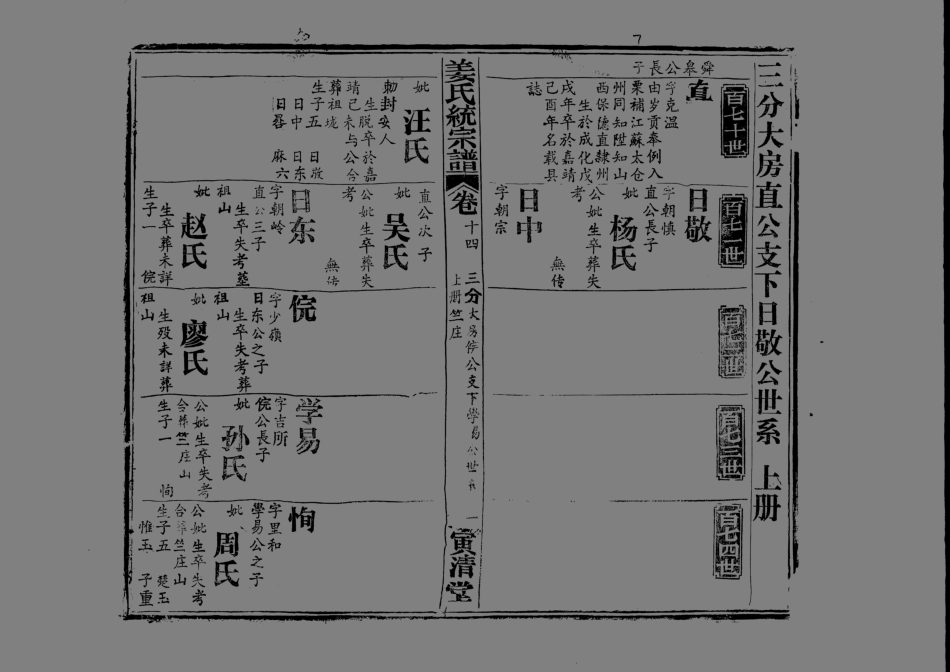 三分大房直公支下日敬公世系 上册
百七十世
舜皋公長子
直
字克温
由岁贡奉例入
粟補江蘇太仓
州同知陞知山
西保德直隸州
生於成化戊
戌年卒於嘉靖
己酉年名载县
誌
百七一世
日敬
字朝慎
直公長子
杨氏
公妣生卒葬失
考
無传
日中
字朝宗
百七二世
百七三世
百七四世
姜氏統宗譜
卷十四
三分大房直公支下学易公世系
上册竺庄
一
寅清堂
妣
汪氏
勅封安人
生脱卒於嘉
靖己未与公合
葬祖垅
生子五 日敬
日中 日东
日晷 麻六
直公次子
妣
吴氏
公妣生卒葬失
考
無传
日东
字朝岭
直公三子
生卒失考墓
祖山
妣
赵氏
生卒葬未詳
生子一 俒
俒
字少嶺
日东公之子
生卒失考葬
祖山
妣
廖氏
生殁未詳葬
祖山
学易
字吉所
俒公長子
妣
孙氏
公妣生卒失考
合葬竺庄山
生子一 恂
恂
字里和
學易公之子
妣
周氏
公妣生卒失考
合葬竺庄山
生子五 楚玉
惟玉 子重